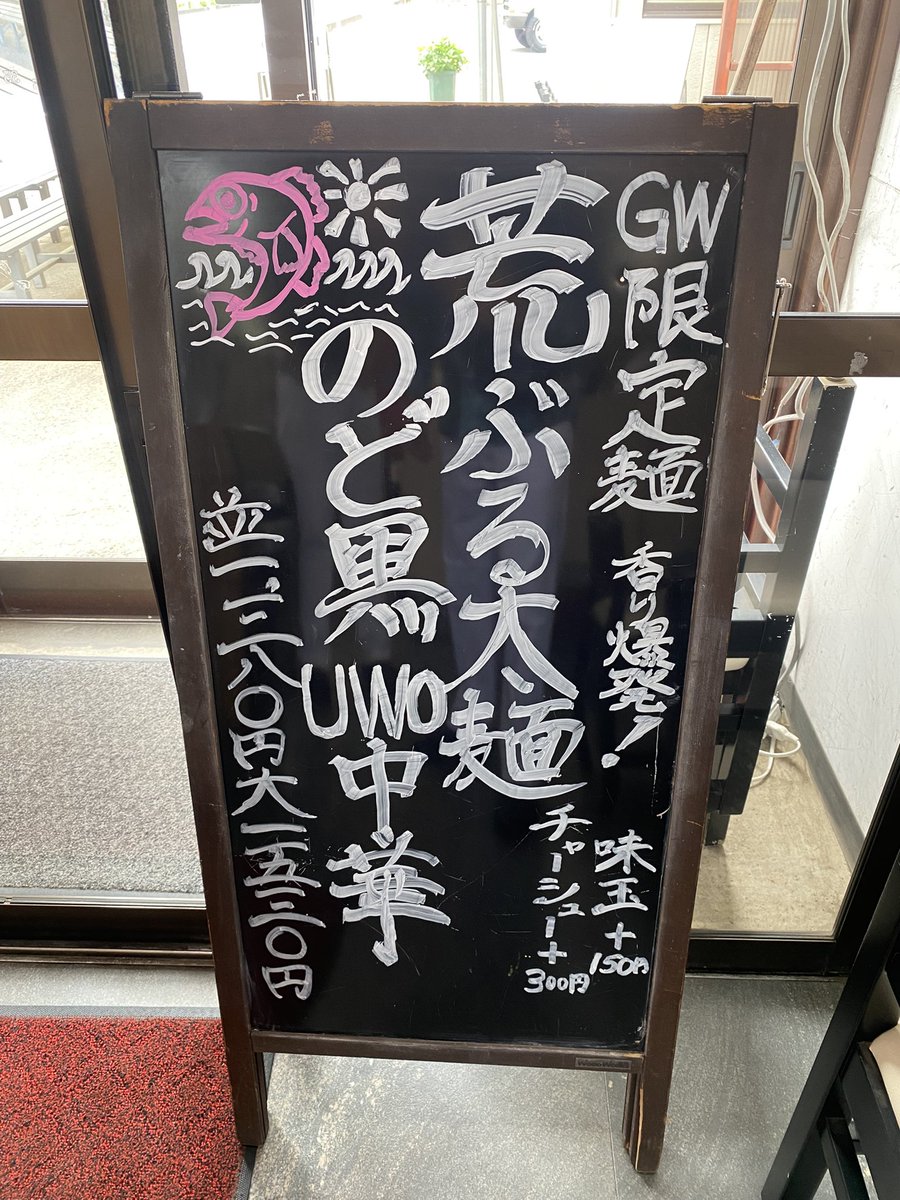 GW限定麺 香り爆発!
味玉+150円
チャーシュー+300円
荒ぶる大麺
のど黒UWO中華
並一、二八〇円大一五三〇円